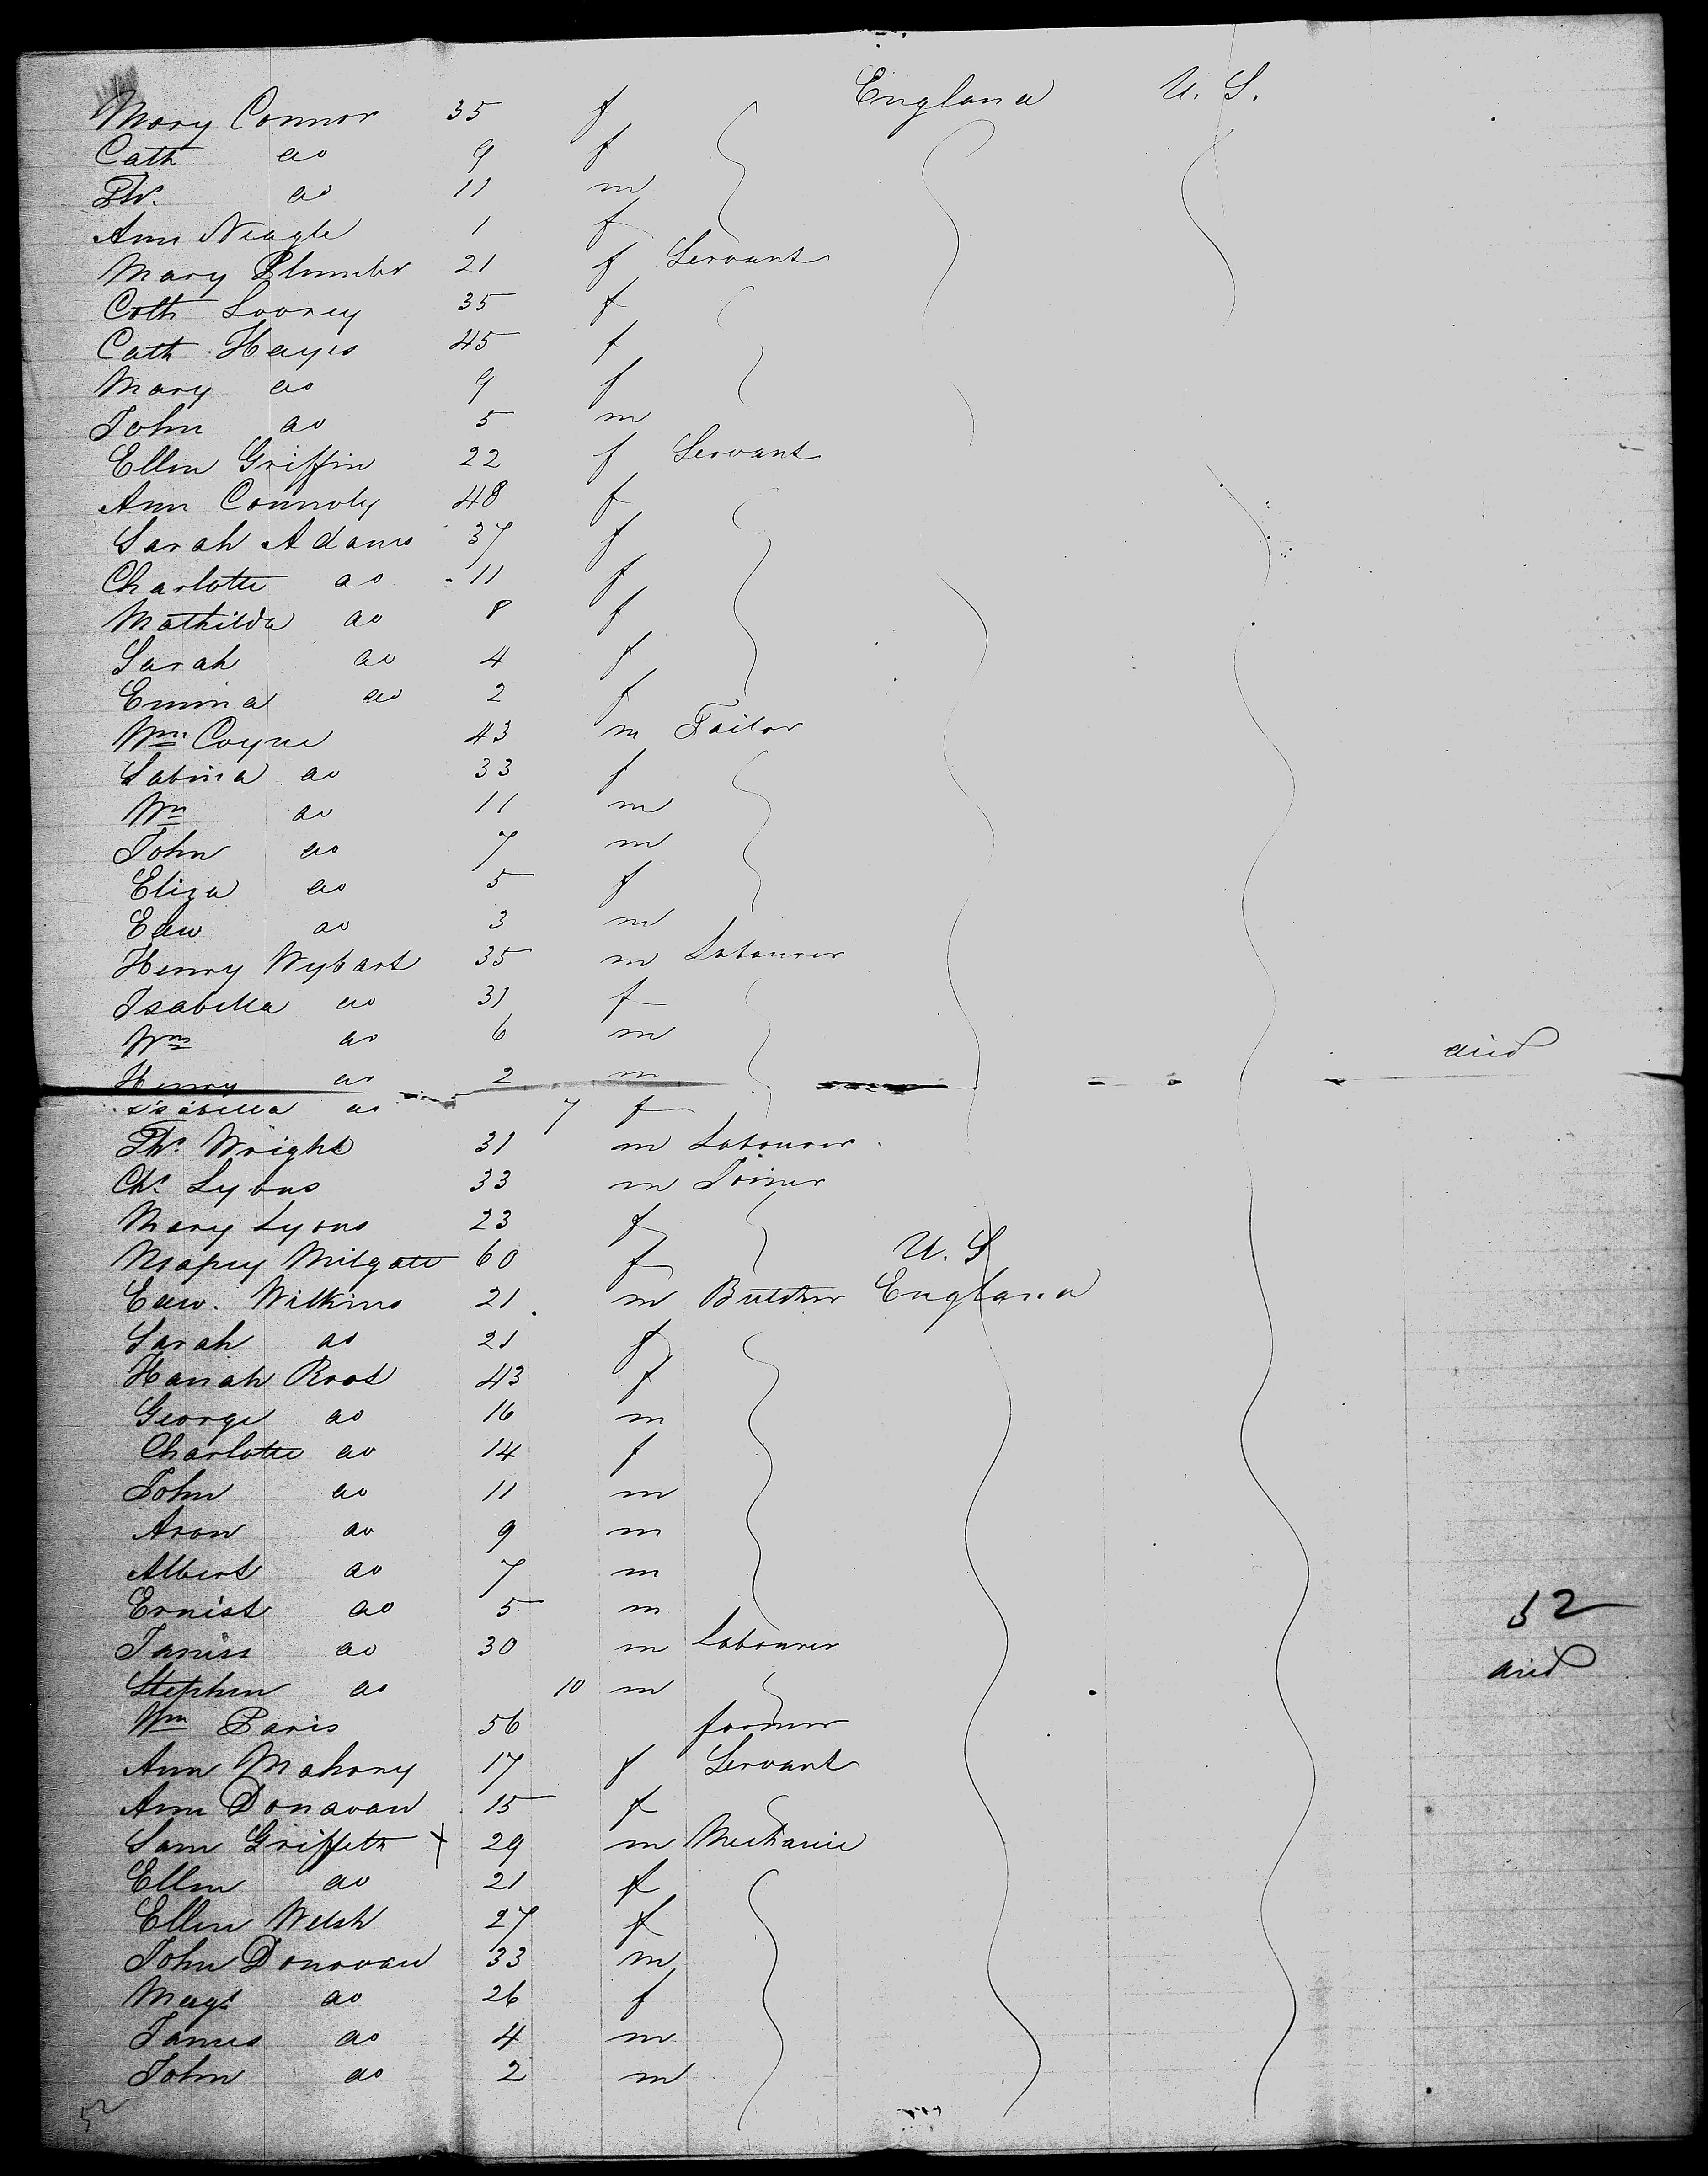 Mary Connor 35 f England U. S.
Cath do 9 f
Ths. do 11 m
Ann Neagle 1 f
Mary Plumber 21 f Servant
Cath Looney 35 f
Cath Hayes 45 f
Mary do 9 f
John do 5 m
Ellen Griffin 22 f Servant
Ann Connoly 48 f
Sarah Adams 37 f
Charlotte do 11 f
Mathilda do 8 f
Sarah do 4 f
Emma do 2 f
Wm. Coyne 43 m Tailor
Sabina do 33 f
Wm do 11 m
John do 7 m
Eliza do 5 f
Edw do 3 m
Henry Wybart 35 m Labourer
Isabella do 31 f
Wm do 6 m
Henry do 2 m died
Isabella do 7 f
Ths. Wright 31 m Labourer
Chs. Lyons 33 m Joiner
Mary Lyons 23 f
Milgate 60 f U. S
Edw. Wilkins 21 m Butcher England
Sarah do 21 f
Hanah Root 43 f
George do 16 m
Charlotte do 14 f
John do 11 m
Aron do 9 m
Albert do 7 m
Ernist do 5 m 52
James do 30 m Labourer
Stephen do 10 m died
Wm Paris 56 farmer
Ann Mahony 17 f Servant
Ann Donavan 15 f
Sam Griffeth X 29 m Mechanic
Ellen do 21 f
Ellen Welsh 27 f
John Donovan 33 m
Magt do 26 f
James do 4 m
John do 2 m
52